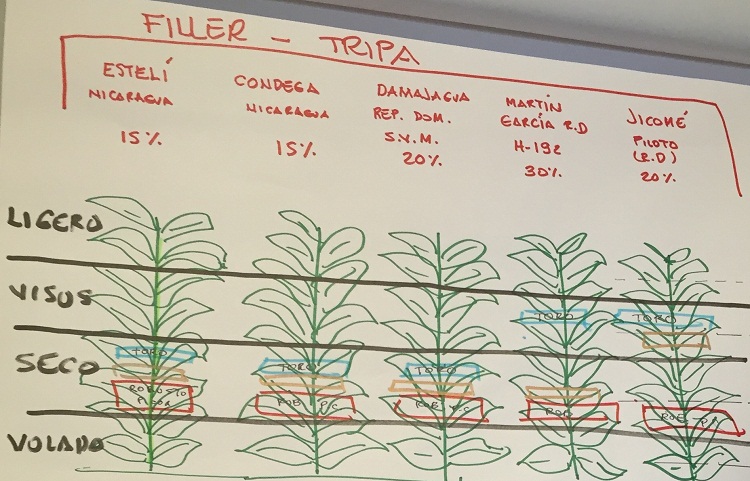 FILLER - TRIPA
ESTELÍ
NICARAGUA
15%
CONDEGA
NICARAGUA
15%
DAMAJAGUA
REP. DOM.
S.V.M.
20%
MARTIN
GARCÍA R.D
H-192
30%
JICOMÉ
PILOTO
(R.D)
20%
LIGERO
VISUS
TORO
TORO
SECO
TORO
TORO
TORO
ROBUSTO
ROB P/C
ROB
ROB
VOLADO